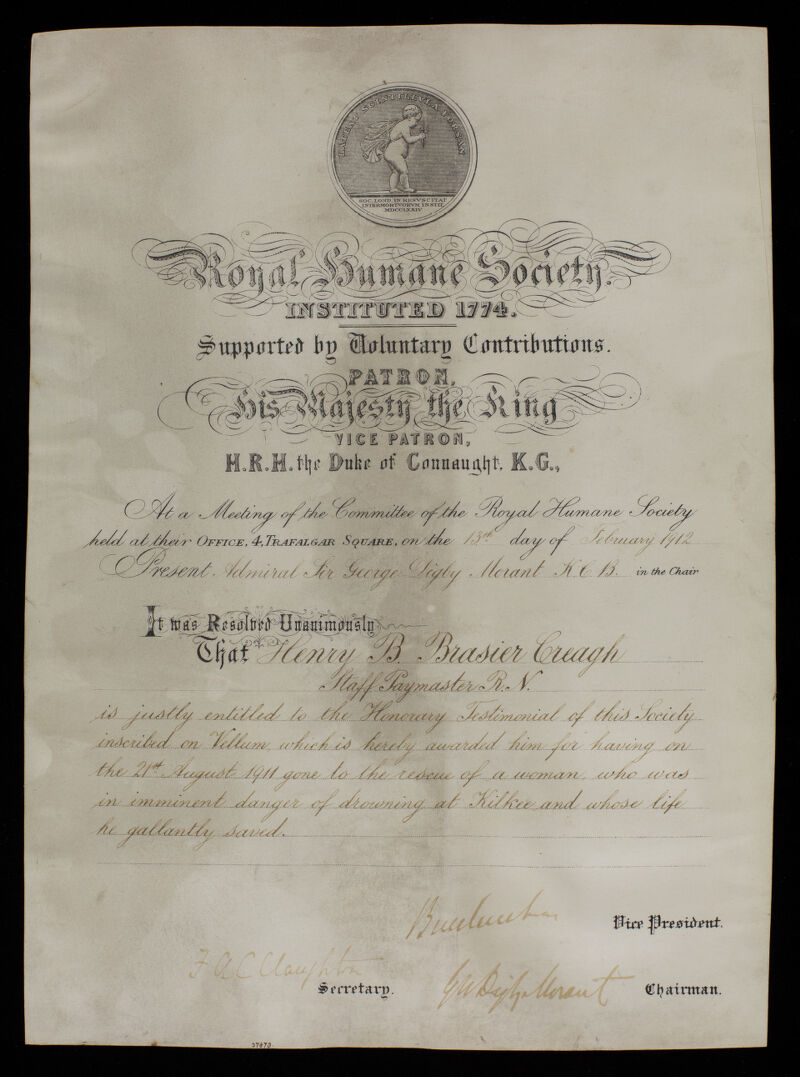 LATEAT SCINTILLVLA FORSAN
SOC. LOND. IN RESVSCITAT
INTERMORTVORVM INSTIT.
MDCCLXXIV
Royal Humane Society.
INSTITUTED 1774.
Supported by Voluntary Contributions.
PATRON,
His Majesty the King
VICE PATRON,
H.R.H. the Duke of Connaught, K.G.,
At a Meeting of the Committee of the Royal Humane Society
held at their OFFICE, 4, TRAFALGAR SQUARE, on the 13th day of February 1912
Present Admiral Sir George Digby Morant K.C.B. in the Chair
It was Resolved Unanimously
That Henry B. Brasier Creagh
Staff Paymaster R.N.
is justly entitled to the Honorary Testimonial of this Society
inscribed on Vellum, which is hereby awarded him for having on
the 21st August 1911 gone to the rescue of a woman, who was
in imminent danger of drowning at Kilkee and whose life
he gallantly saved.
Vice President.
F A C Claughton
Secretary.
G Digby Morant
Chairman.
37670.